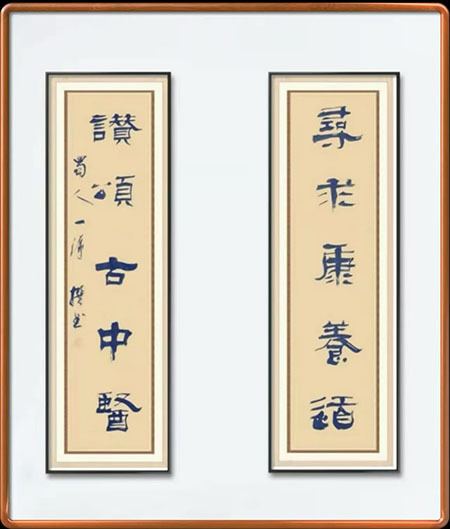 尋求康養道
讚頌古中醫
蜀人一淨撰書